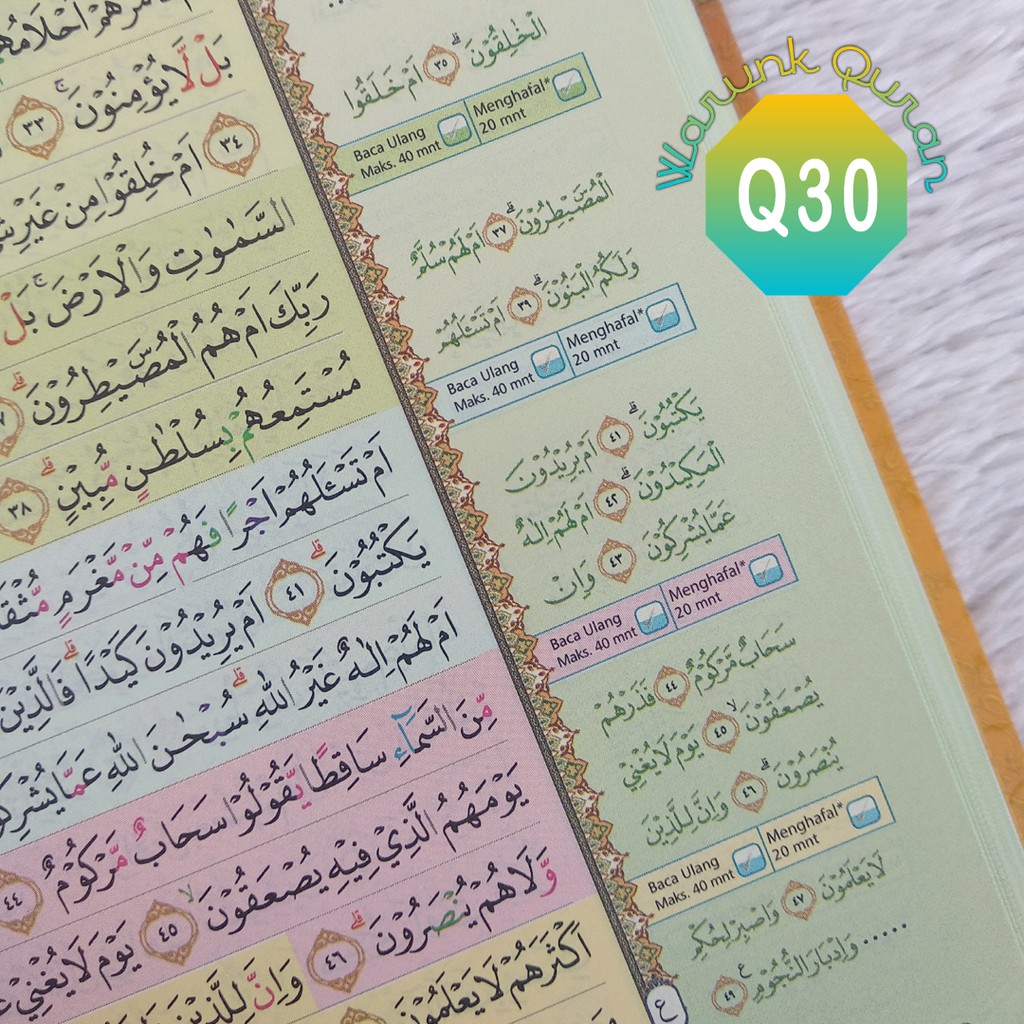 Warunk Quran
Q30
احْلَامُهُمْ
بَلْ لَّا يُؤْمِنُوْنَۚ ٣٣
٣٤ اَمْ خُلِقُوْا مِنْ غَيْرِ
السَّمٰوٰتِ وَالْاَرْضَۚ بَلْ
رَبِّكَ اَمْ هُمُ الْمُصَۣيْطِرُوْنَۗ
مُسْتَمِعُهُمْ بِسُلْطٰنٍ مُّبِيْنٍۗ ٣٨
اَمْ تَسْـَٔلُهُمْ اَجْرًا فَهُمْ مِّنْ مَّغْرَمٍ
يَكْتُبُوْنَۗ ٤١ اَمْ يُرِيْدُوْنَ كَيْدًاۗ فَالَّذِيْنَ
اَمْ لَهُمْ اِلٰهٌ غَيْرُ اللّٰهِۗ سُبْحٰنَ اللّٰهِ عَمَّا
مِّنَ السَّمَاۤءِ سَاقِطًا يَّقُوْلُوْا سَحَابٌ مَّرْكُوْمٌ ٤٤
يَوْمَهُمُ الَّذِيْ فِيْهِ يُصْعَقُوْنَۙ ٤٥ يَوْمَ لَا يُغْنِيْ
وَّلَا هُمْ يُنْصَرُوْنَۗ ٤٦ وَاِنَّ لِلَّذِيْنَ
اَكْثَرَهُمْ لَا يَعْلَمُوْنَ
الْخٰلِقُوْنَۗ ٣٥ اَمْ خَلَقُوا
Baca Ulang Maks. 40 mnt
Menghafal* 20 mnt
الْمُصَۣيْطِرُوْنَۗ ٣٧ اَمْ لَهُمْ سُلَّمٌ
وَلَكُمُ الْبَنُوْنَۗ ٣٩ اَمْ تَسْـَٔلُهُمْ
Baca Ulang Maks. 40 mnt
Menghafal* 20 mnt
يَكْتُبُوْنَۗ ٤١ اَمْ يُرِيْدُوْنَ
الْمَكِيْدُوْنَۗ ٤٢ اَمْ لَهُمْ اِلٰهٌ
عَمَّا يُشْرِكُوْنَ ٤٣ وَاِنْ
Baca Ulang Maks. 40 mnt
Menghafal* 20 mnt
سَحَابٌ مَّرْكُوْمٌ ٤٤ فَذَرْهُمْ
يُصْعَقُوْنَۙ ٤٥ يَوْمَ لَا يُغْنِيْ
يُنْصَرُوْنَۗ ٤٦ وَاِنَّ لِلَّذِيْنَ
Baca Ulang Maks. 40 mnt
Menghafal* 20 mnt
لَا يَعْلَمُوْنَ ٤٧ وَاصْبِرْ لِحُكْمِ
..... وَاِدْبَارَ النُّجُوْمِ ࣖ ٤٩
ع